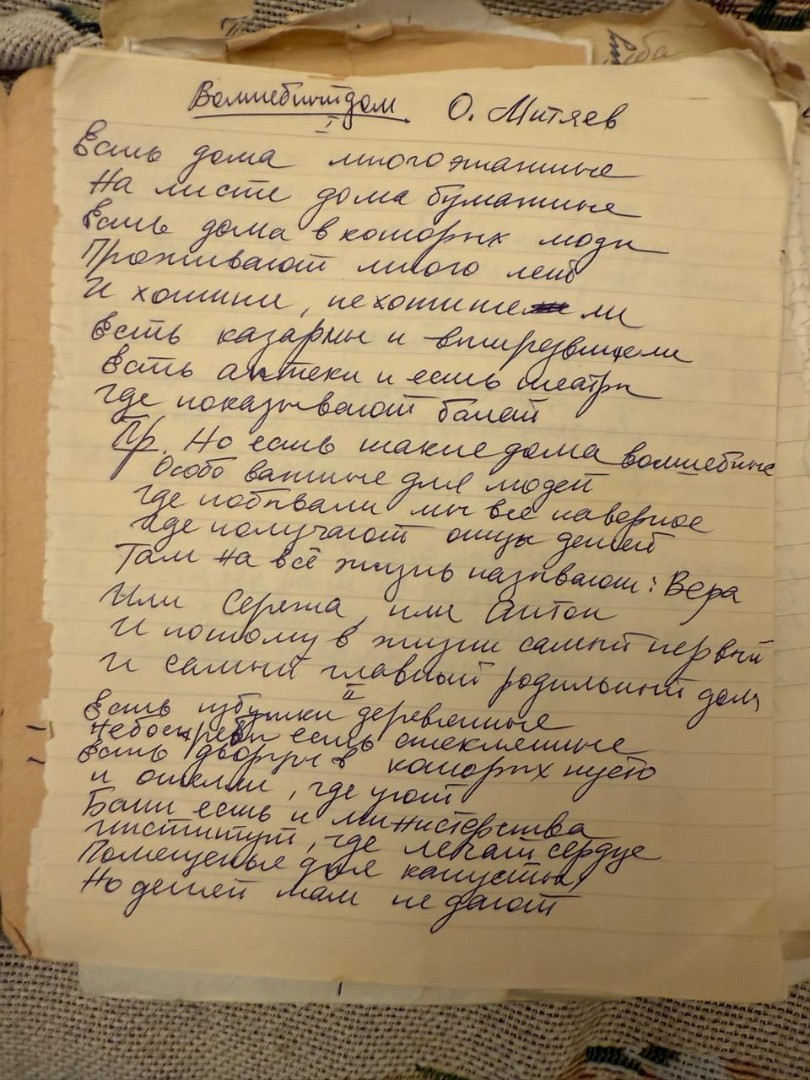 Волшебный дом О. Митяев
I
Есть дома многоэтажные
На листе дома бумажные
Есть дома в которых люди
Проживают много лет
И хотити, не хотите ли
Есть казармы и вытрезвители
Есть аптеки и есть театры
Где показывают балет
Пр. Но есть такие дома волшебные
Особо важные для людей
Где побывали мы все наверное
Где получают отцы детей
Там на всё жизнь называют: Вера
Или Сережа, или Антон
И потому в жизни самый первый
И самый главный родильный дом
II
Есть избушки деревянные
Небоскребы есть стеклянные
Есть дворцы в которых пусто
и отели, где уют
Бани есть и министерства
институт, где лечат сердце
Помещенье для капусты,
Но детей там не дают